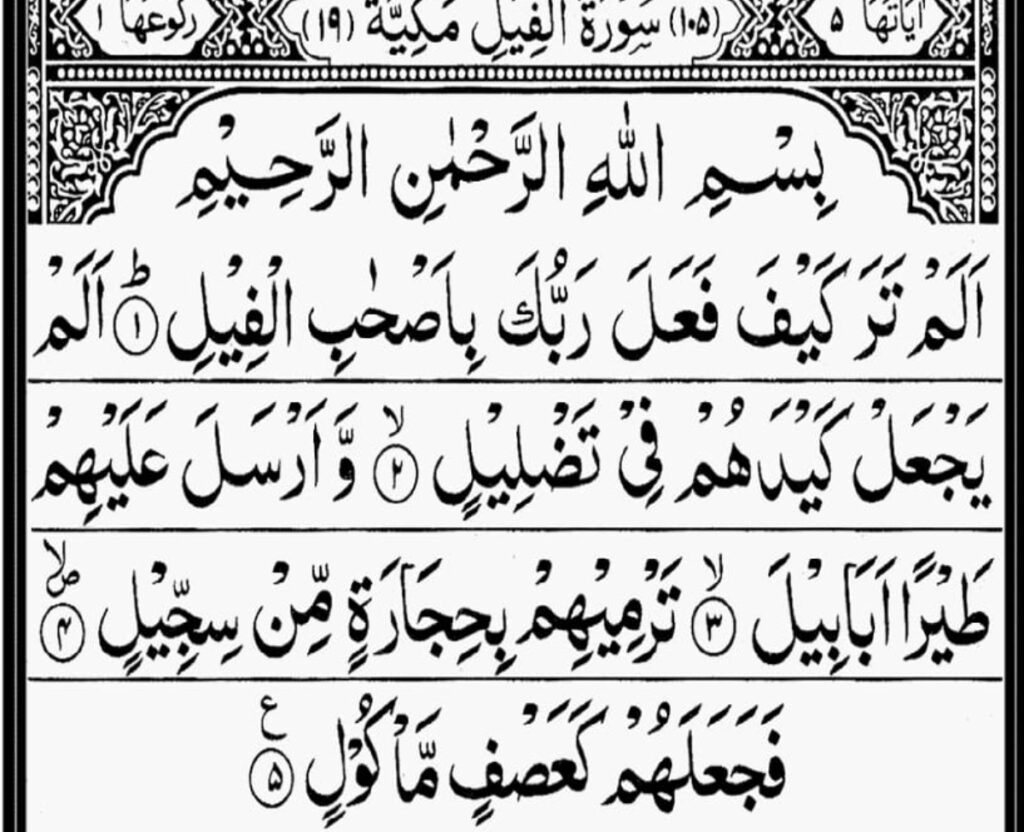 اٰیَاتُهَا ۵ (۱۰۵) سُوْرَةُ الْفِیْلِ مَكِّیَّةٌ (۱۹) رُكُوْعُهَا ۱
بِسْمِ اللّٰهِ الرَّحْمٰنِ الرَّحِیْمِ
اَلَمْ تَرَ كَیْفَ فَعَلَ رَبُّكَ بِاَصْحٰبِ الْفِیْلِ ؕ ۱ اَلَمْ
یَجْعَلْ كَیْدَهُمْ فِیْ تَضْلِیْلٍ ۙ ۲ وَّ اَرْسَلَ عَلَیْهِمْ
طَیْرًا اَبَابِیْلَ ۙ ۳ تَرْمِیْهِمْ بِحِجَارَةٍ مِّنْ سِجِّیْلٍ ۪ۙ ۴
فَجَعَلَهُمْ كَعَصْفٍ مَّاْكُوْلٍ ع ۵